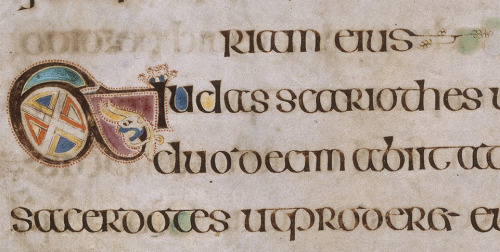 riam eius
Et iudas scariothes u
duodecim abiit a
sacerdotes utproder& eu